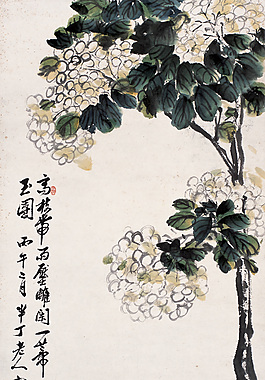 高枝带雨压雕阑一蒂
玉團 丙午二月半丁老人